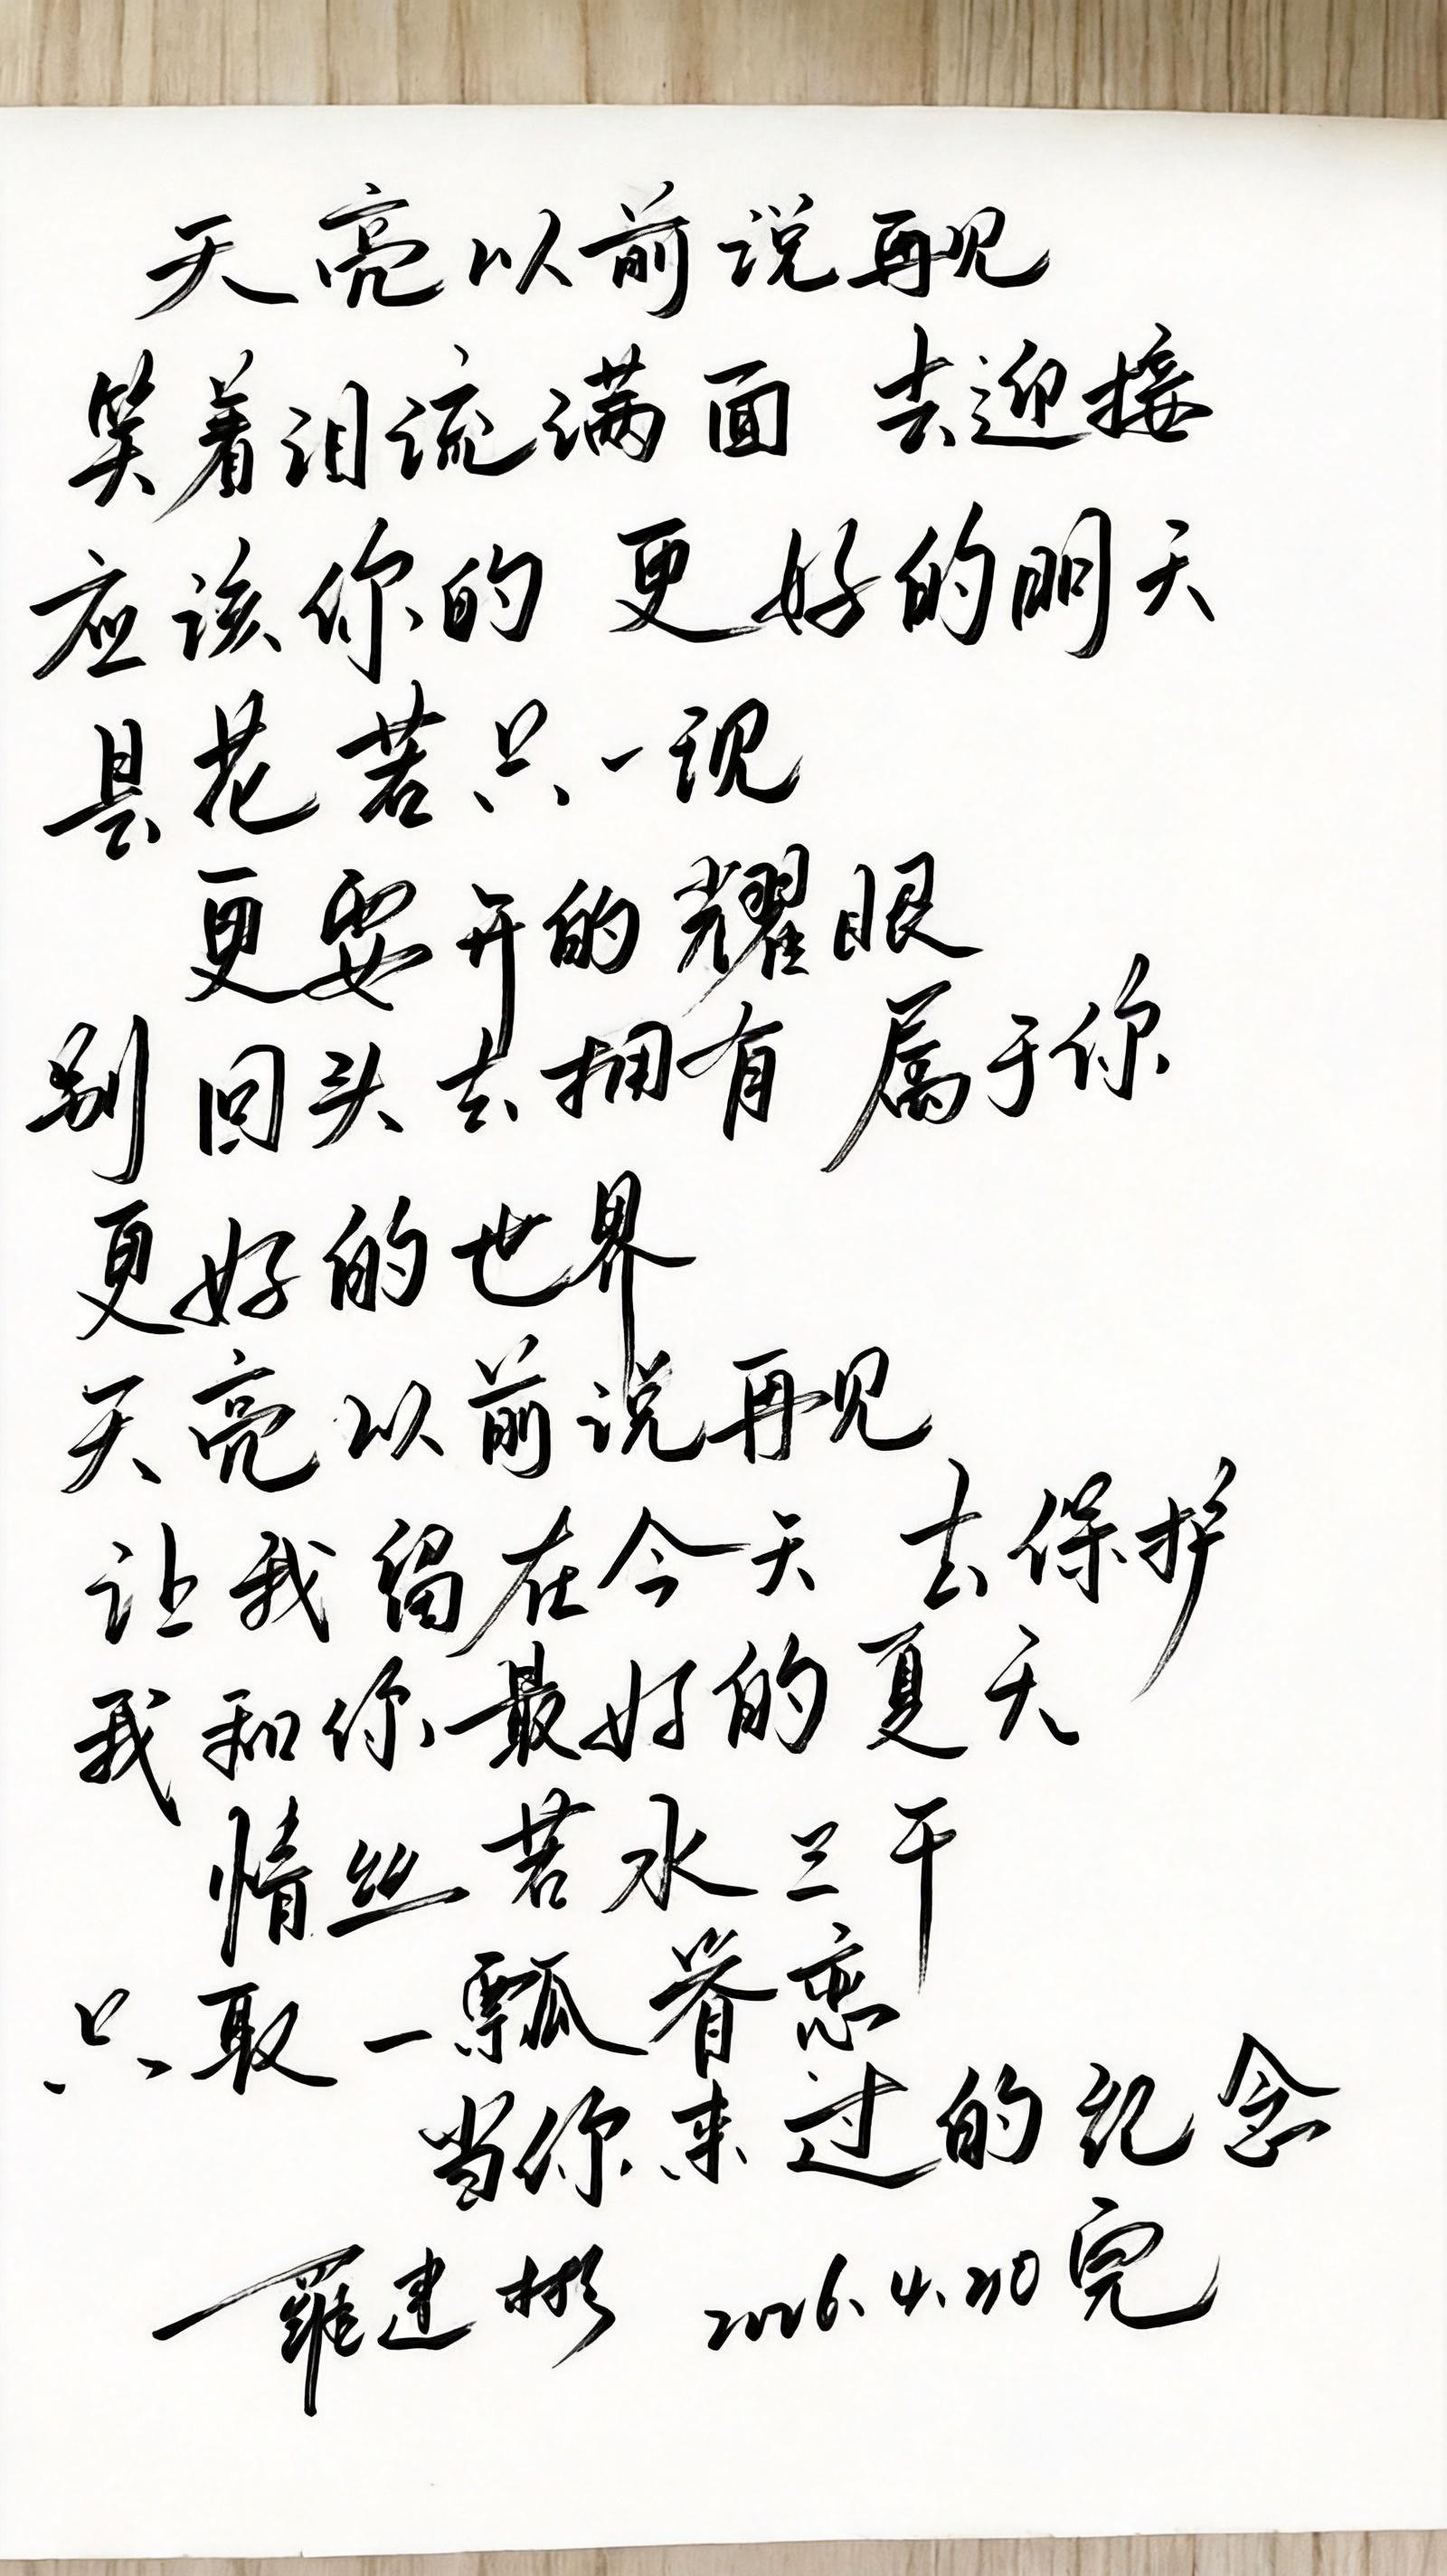 天亮以前说再见
笑着泪流满面 去迎接
应该你的 更好的明天
昙花若只一现
更要开的耀眼
别回头去拥有 属于你
更好的世界
天亮以前说再见
让我留在今天 去保护
我和你最好的夏天
情丝若水三千
只取一瓢眷恋
当你来过的纪念
羅建彬 2026.4.20完